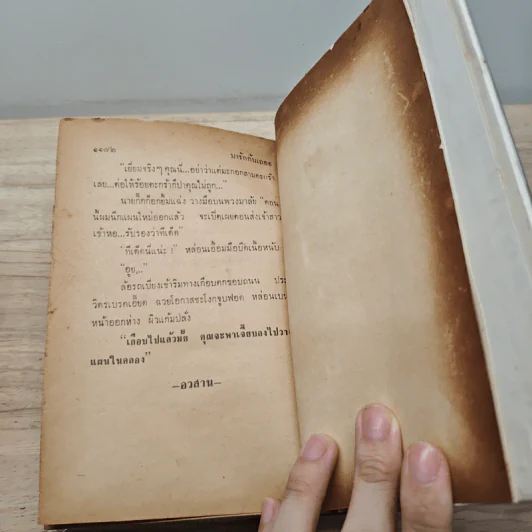 ๑๑๘๒
มารักกันเถอะ
"เยี่ยมจริงๆ คุณนี่...อย่าว่าแต่มะกอกสามตะกร้า
เลย...ต่อให้ร้อยตะกร้าก็ปาคุณไม่ถูก..."
นายกึกก๊อกยิ้มแฉ่ง วางมือบนพวงมาลัย "ตอน
นี้ผมนึกแผนใหม่ออกแล้ว จะเปิดเผยตอนส่งเข้าสาว
เข้าหอ...รับรองว่าทีเด็ด"
"ทีเด็ดนี่แน่ะ !" หล่อนเอื้อมมือบิดเนื้อหนับ
"อูย..."
ล้อรถเบียงเข้าริมทางเกือบตกขอบถนน
วิตรเบรคเอี๊ยด ฉวยโอกาสชะโงกจูบฟอด หล่อนเบน
หน้าออกห่าง ผิวแก้มปลั่ง
"เถือนไปแล้วมั้ย คุณจะพาเจี๊ยบลงไปวาง
แผนในคลอง"
—อวสาน—